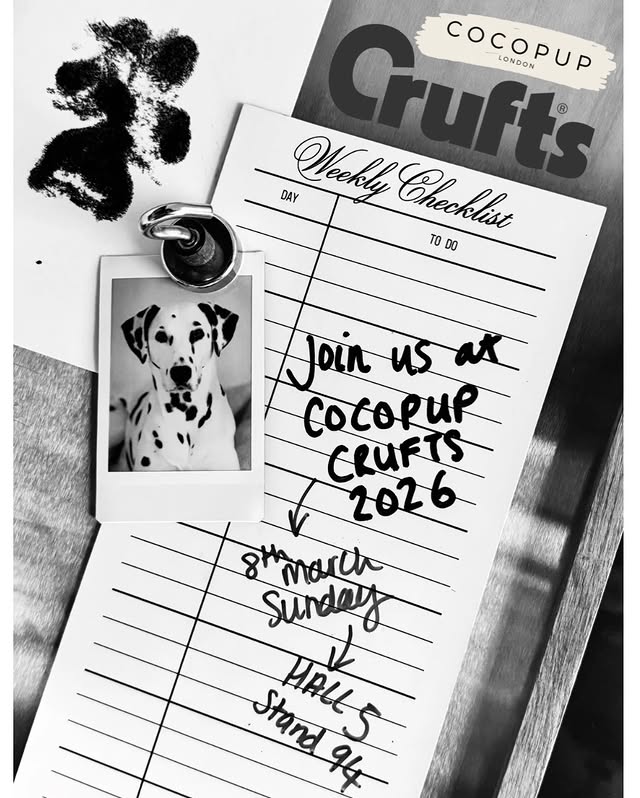 COCOPUP
LONDON
Crufts®
Weekly Checklist
DAY
TO DO
Join us at
COCOPUP
CRUFTS
2026
8th March
Sunday
HALL 5
Stand 94